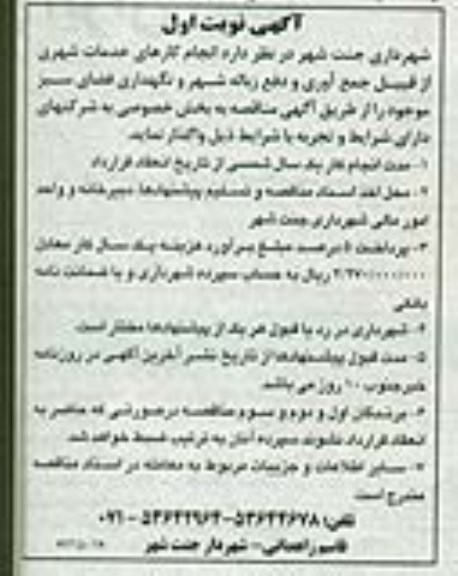 آگهی نوبت اول
شهرداری جنت شهر در نظر دارد انجام کارهای خدمات شهری
از قبیل جمع آوری و دفع زباله شهر و نگهداری فضای سبز
موجود را از طریق آگهی مناقصه به بخش خصوصی به شرکتهای
دارای شرایط و تجربه با شرایط ذیل واگذار نماید.
۱- مدت انجام کار یک سال شمسی از تاریخ انعقاد قرارداد
۲- محل اخذ اسناد مناقصه و تسلیم پیشنهادها، دبیرخانه و واحد
امور مالی شهرداری جنت شهر
۳- پرداخت ۵ درصد مبلغ برآورد هزینه یک سال کار معادل
ریال به حساب سپرده شهرداری و یا ضمانت نامه
بانکی
۴- شهرداری در رد یا قبول هر یک از پیشنهادها مختار است.
۵- مدت قبول پیشنهادها از تاریخ نشر آخرین آگهی در روزنامه
خبرجنوب ۱۰ روز می باشد.
۶- برندگان اول و دوم و سوم مناقصه درصورتی که حاضر به
انعقاد قرارداد نشوند سپرده آنان به ترتیب ضبط خواهد شد.
۷- سایر اطلاعات و جزییات مربوط به معامله در اسناد مناقصه
مندرج است.
تلفن: ۵۳۶۴۴۶۷۸-۵۳۶۴۲۹۶۴ - ۰۷۱
قاسم رامدانی- شهردار جنت شهر